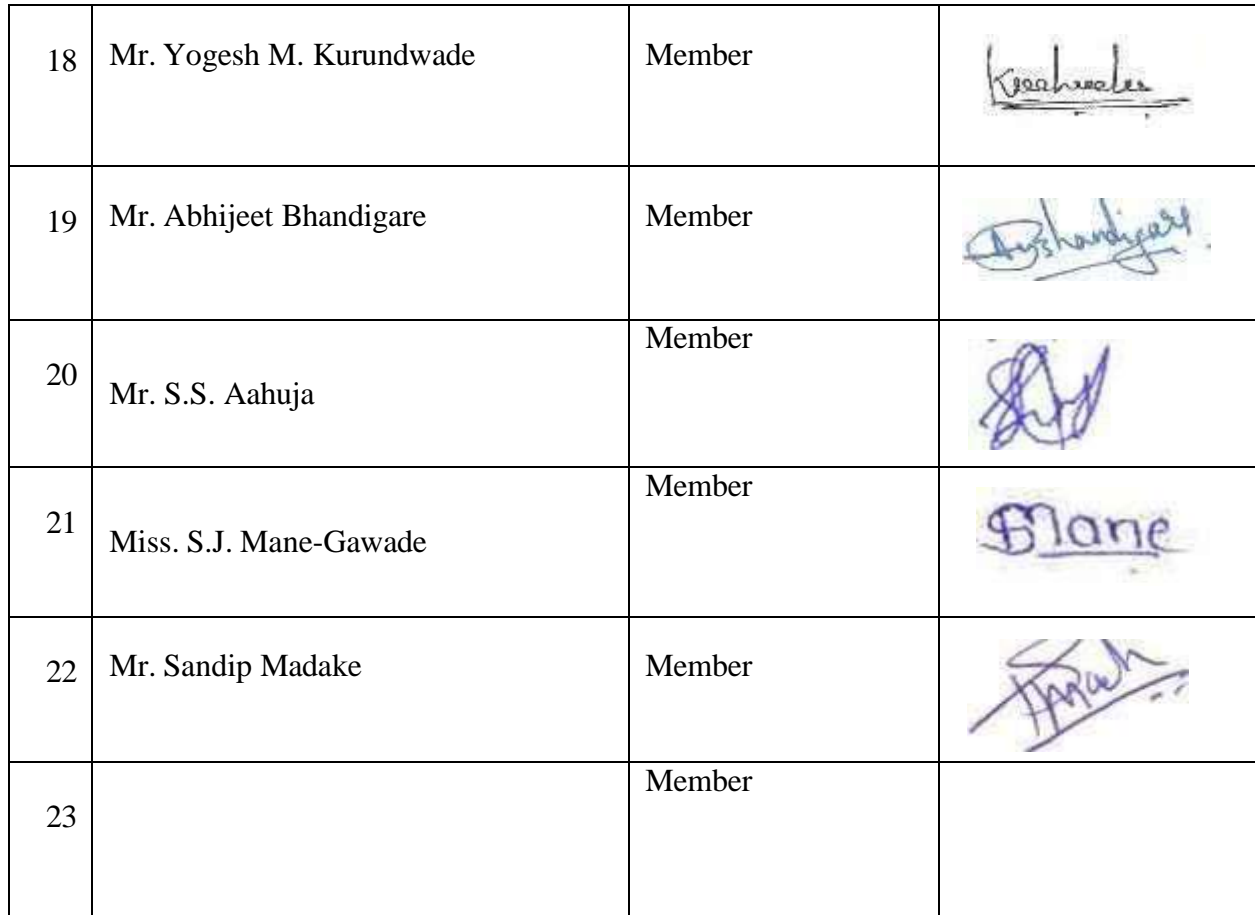 18 Mr. Yogesh M. Kurundwade Member
19 Mr. Abhijeet Bhandigare Member
Member
20 Mr. S.S. Aahuja
Member
21 Miss. S.J. Mane-Gawade SMane
22 Mr. Sandip Madake Member
Member
23